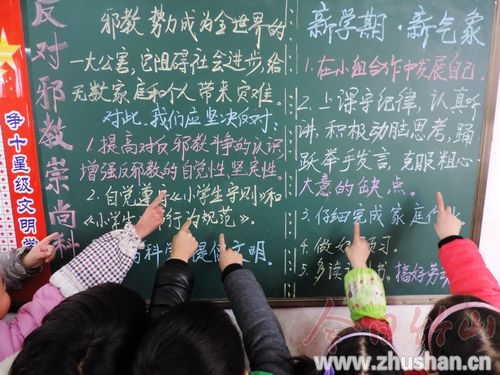 反对邪教崇尚科
争十星级文明学
邪教势力成为全世界的
一大公害,它阻碍社会进步,给
无数家庭和个人带来灾难。
对此,我们应坚决反对:
1.提高对反邪教斗争的认识
增强反邪教的自觉性,坚定性。
2.自觉遵守《小学生守则》和
《小学生 行为规范》。
科学 提倡文明。
新学期·新气象
1.在小组合作中发展自己。
2.上课守纪律,认真听
讲,积极动脑思考,踊
跃举手发言,克服粗心
大意的缺点。
3.仔细完成家庭作业
4.做好 预习。
5.多读 书,搞好劳动
今日竹山
www.zhushan.cn